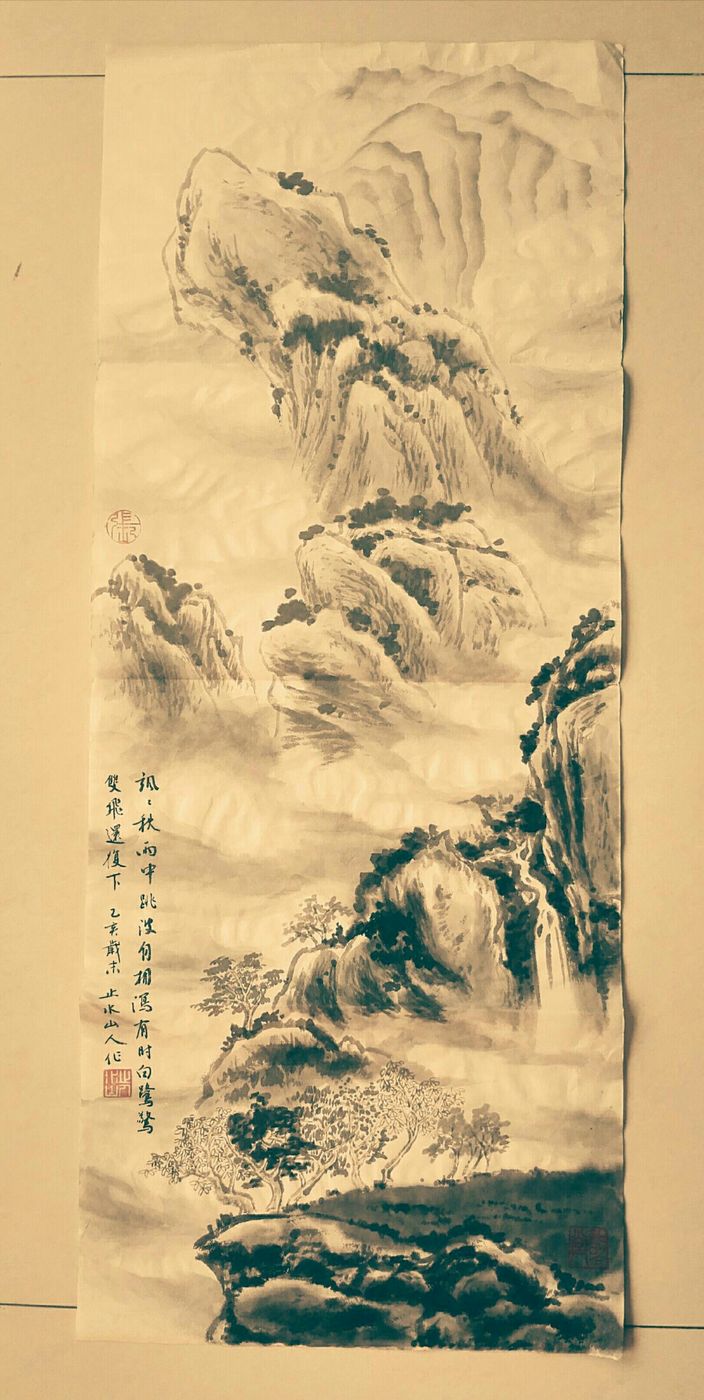 颯〻秋雨中跳波自相瀉有时白鷺驚
雙飛還復下 乙亥歲末 止水山人作